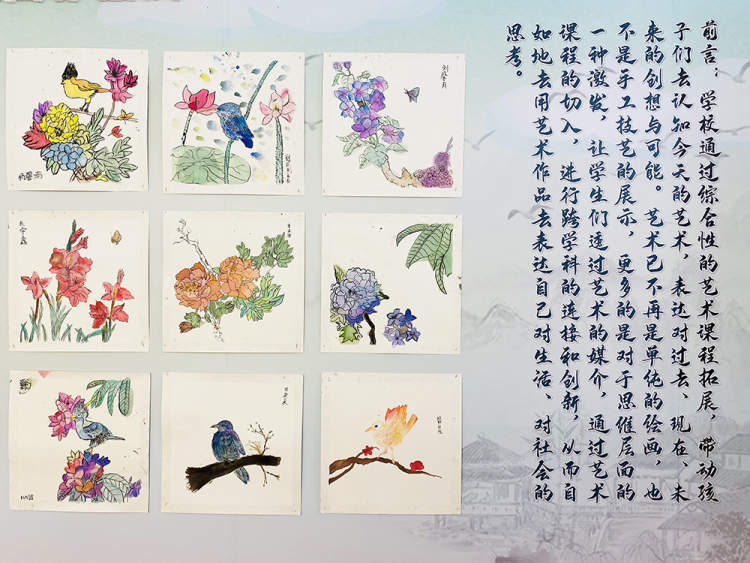 前言：学校通过综合性的艺术课程拓展，带动孩
子们去认知今天的艺术，表达对过去、现在、未
来的创想与可能。艺术已不再是单纯的绘画，也
不是手工技艺的展示，更多的是对于思维层面的
一种激发，让学生们透过艺术的媒介，通过艺术
课程的切入，进行跨学科的连接和创新，从而自
如地去用艺术作品去表达自己对生活、对社会的
思考。